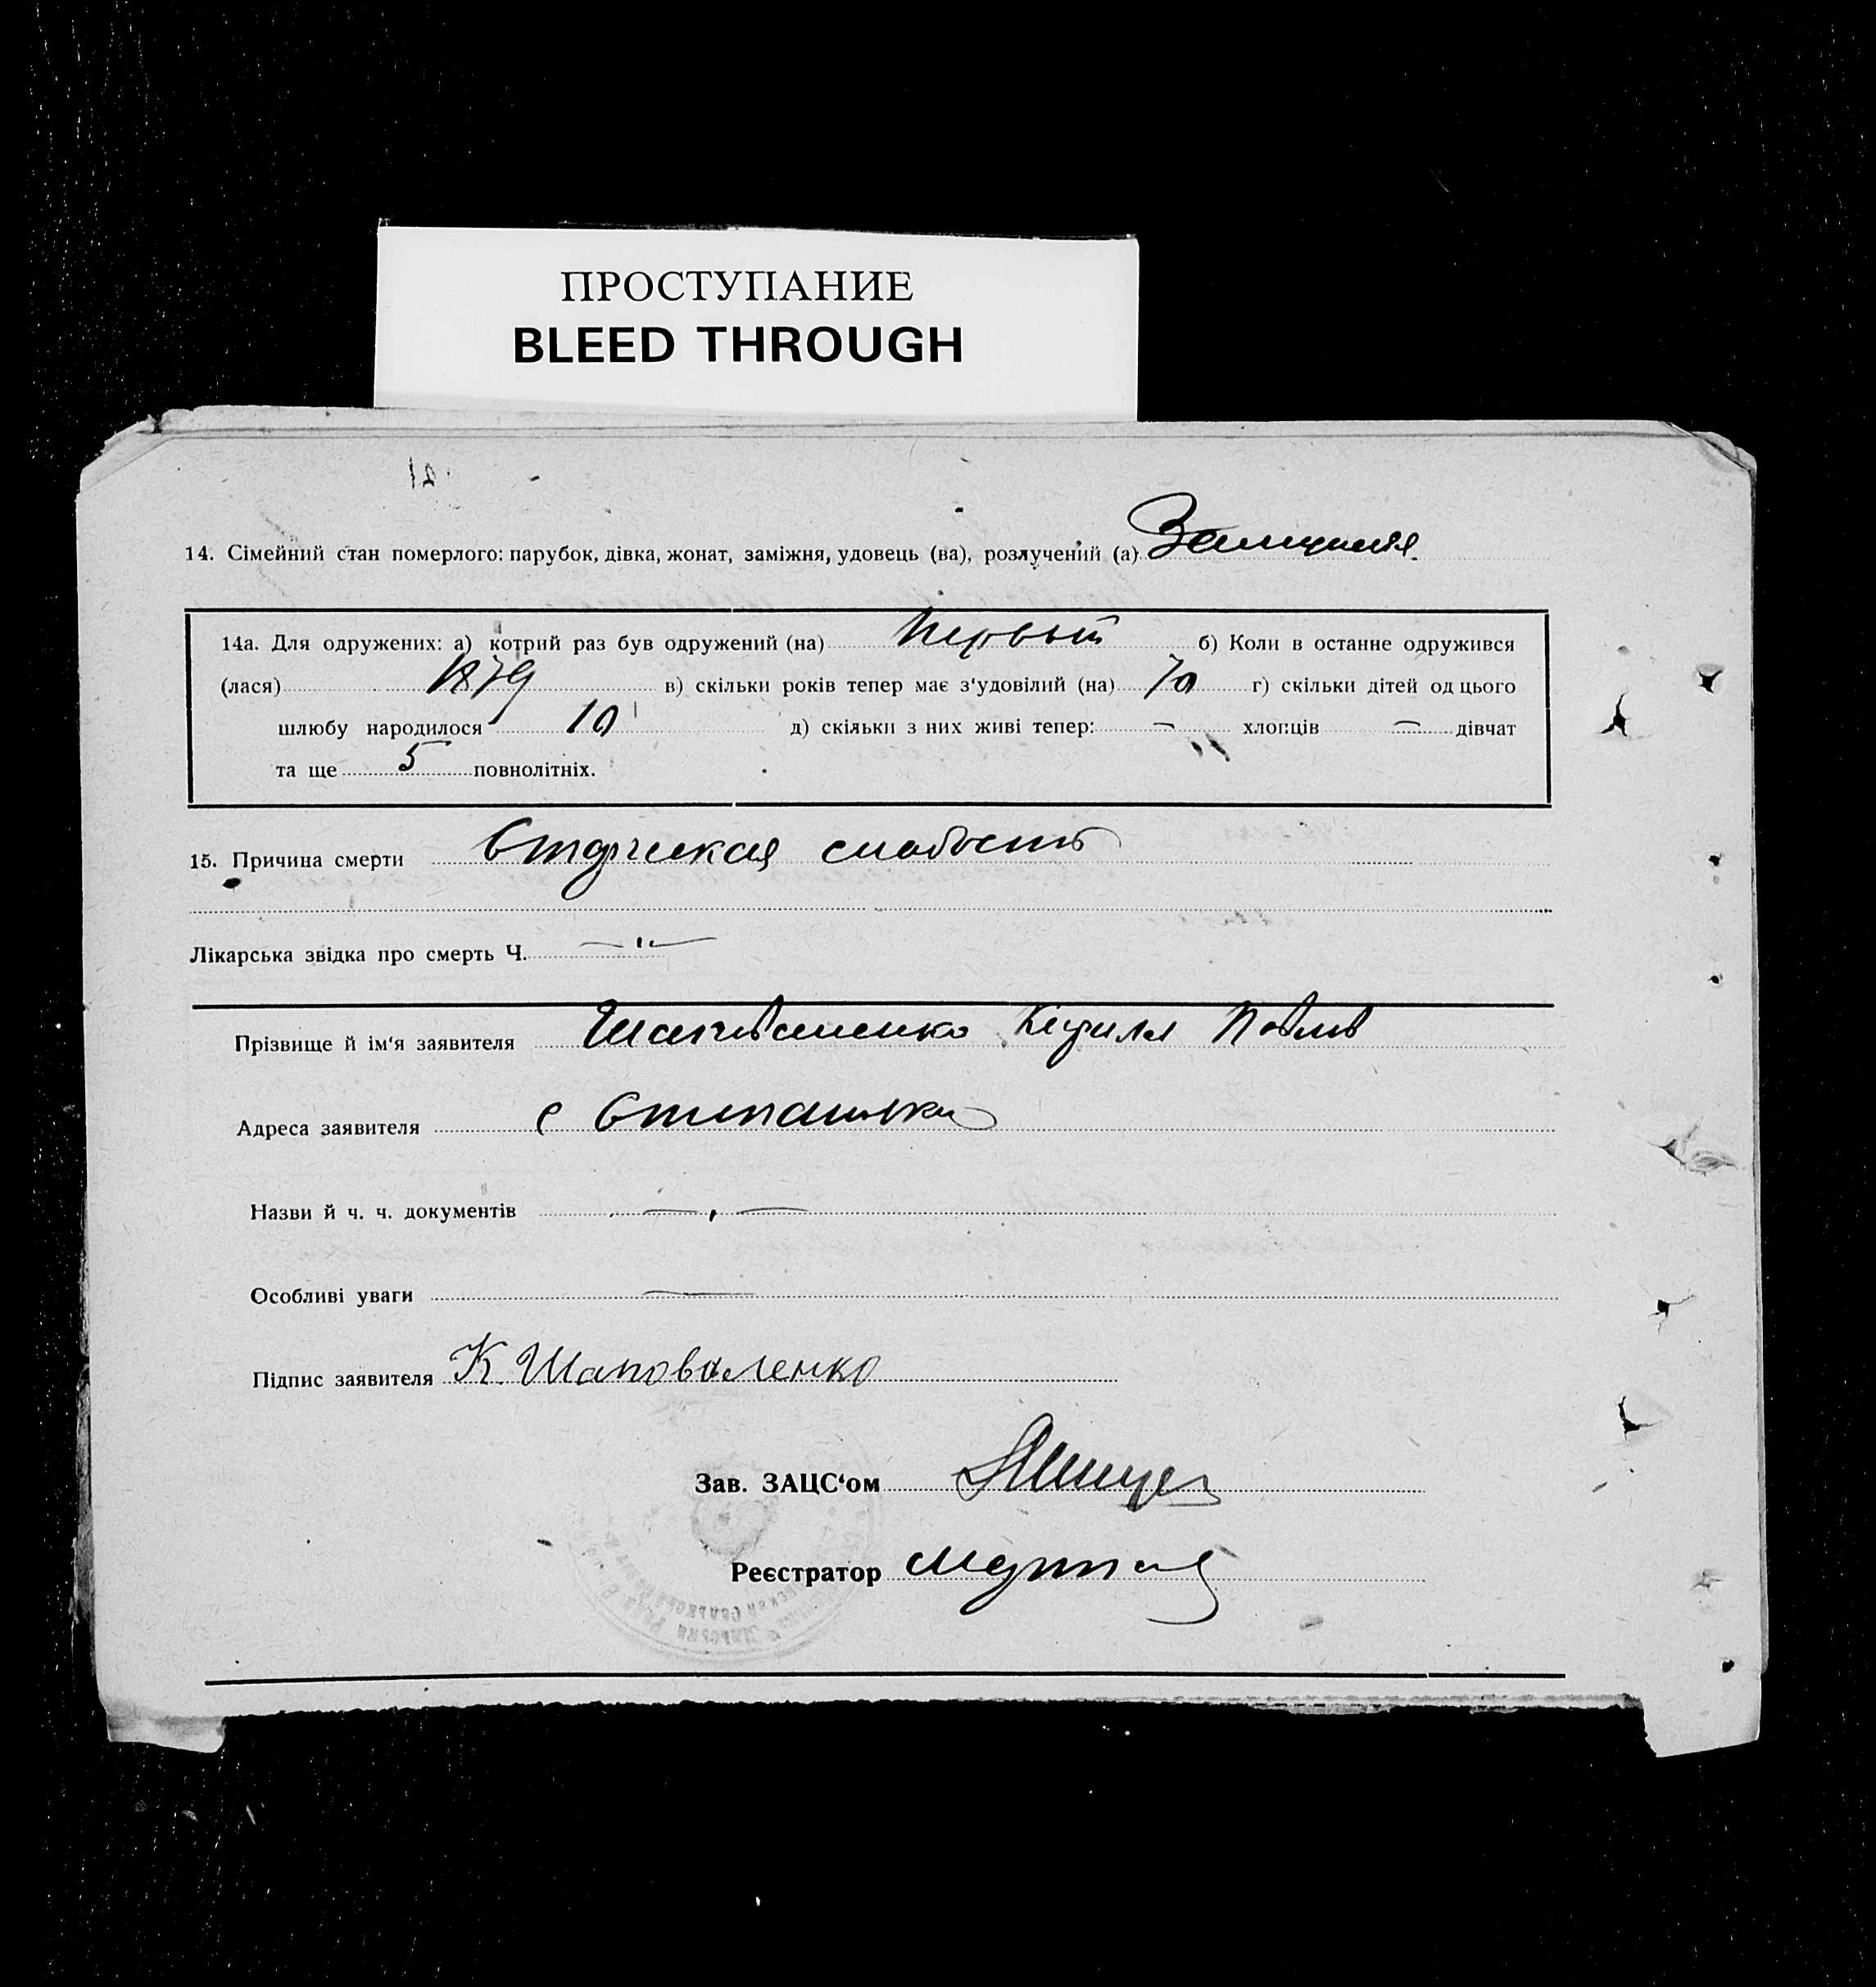 ПРОСТУПАНИЕ
BLEED THROUGH
21
14. Сімейний стан померлого: парубок, дівка, жонат, заміжня, удовець (ва), розлучений (а)
14а. Для одружених: а) котрий раз був одружений (на) первый б) Коли в останнє одружився
(лася) 1879 в) скільки років тепер має з‘удовілий (на) 70 г) скільки дітей од цього
шлюбу народилося 10 д) скільки з них живі тепер: — хлопців — дівчат
та ще 5 повнолітніх.
15. Причина смерти Старческая слабость
Лікарська звідка про смерть Ч. —"—
Прізвище й ім‘я заявителя Шаповаленко Кирилл Павлов
Адреса заявителя с Степановка
Назви й ч. ч. документів — , —
Особливі уваги —
Підпис заявителя К. Шаповаленко
Зав. ЗАЦС‘ом
Реєстратор